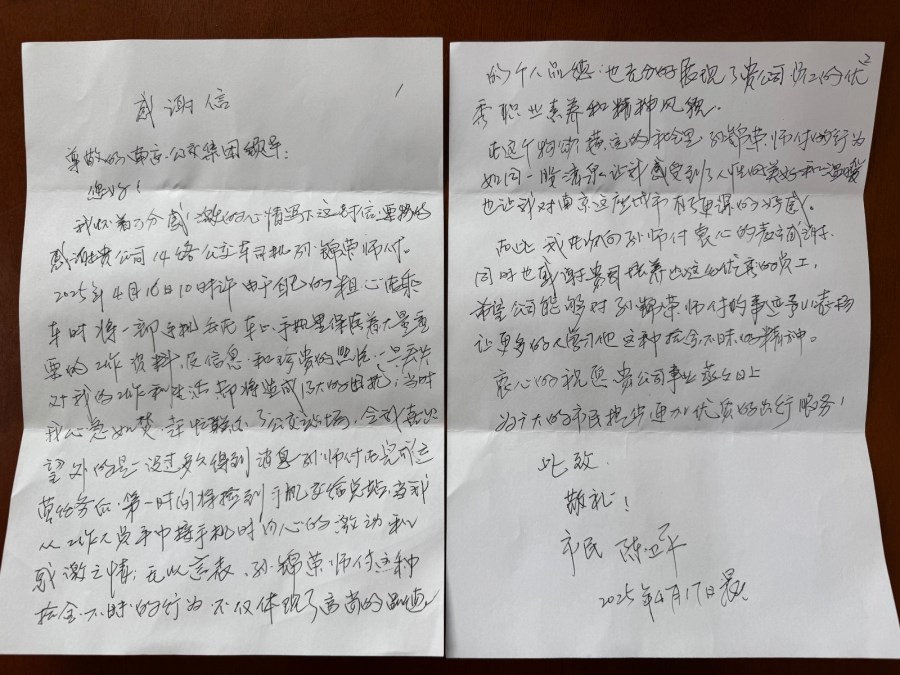 1
感谢信
尊敬的南京公交集团领导：
您好！
我怀着万分感激的心情写下这封信，要特别
感谢贵公司14路公交车司机孙锦荣师付。
2025年4月16日10时许由于自己的粗心在乘
车时将一部手机丢在车上，手机里保存着大量重
要的工作资料，及信息和珍贵的照片，一旦丢失
对我的工作和生活都将造成巨大的困扰；当时
我心急如焚，赶忙联系了公交站场，令我喜出
望外的是一没过多久得到消息孙师付在完成运
营任务后，第一时间将捡到手机交给总站，当我
从工作人员手中接手机时内心的激动和
感激之情；无以言表，孙锦荣师付这种
拾金不昧的行为不仅体现了高尚的品德
2
的个人品德；也充分好展现了贵公司员工的优
秀职业素养和精神风貌。
在这个物欲横流的社会里，孙锦荣师付的行为
如同一股清泉，让我感受到了人性的美好和温暖
也让我对南京这座城市有了更深的好感。
在此我再次向孙师付衷心的表示感谢，
同时也感谢贵司培养出这么优秀的员工，
希望公司能够对孙锦荣师付的事迹予以表扬
让更多的人学习他这种拾金不昧的精神。
衷心的祝愿贵公司事业蒸蒸日上
为广大的市民提供更加优质的出行服务！
此致
敬礼！
市民 陈卫平
2025年4月17日晨